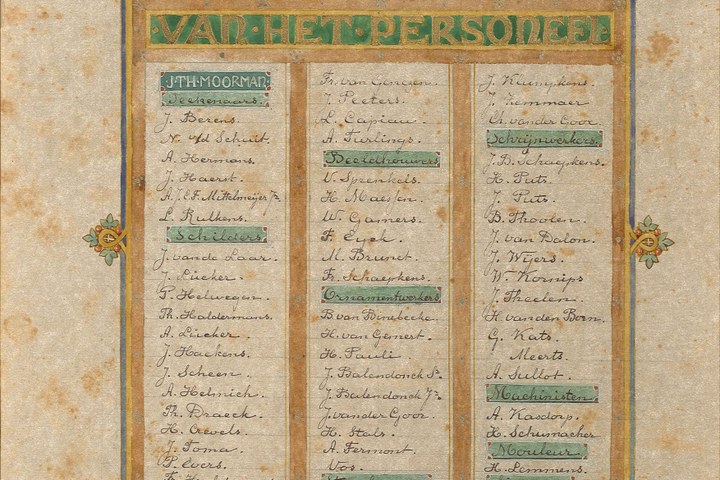 VAN·HET·PERSONEEL
J·TH·MOORMAN·
Teekenaars.
J. Berens.
N. v/d Schuit.
A. Hermans.
J. Haerst.
A.J.E.F. Mittelmeijer Jr.
L. Kulkens.
Schilders.
J. vande Laar.
J. Lücker.
P. Helwegen.
Th. Haldermans.
A. Lücker.
J. Hackens.
J. Scheen.
A. Helmich.
Th. Braeck.
H. Crevels.
J. Toma.
P. Evers.
Fr. van
J. Peeters.
L. Capieau.
A. Furlings.
Beeldhouwers
V. Sprenkels.
H. Maessen.
W. Gamers.
F. Eyck.
M. Brunet.
Fr. Schaepkens.
Ornamentwerkers
B van Binebeche.
H. van Gemert.
H. Pauli.
J. Balendonck Sr.
J. Balendonck Jr.
J. vander Goor.
H. Stals.
A. Fermont.
Vos.
J. Kuimpkens.
J. Zemmaer
Ch. vander Goor.
Schrijnwerkers.
J.B. Schaepkens.
H. Puts.
J. Puts.
B. Thoolen.
J. van Dalon.
J. Wijers.
W. Kornips
J. Theelen.
H. vanden Born.
G. Kats.
Meerts.
A. Sullot.
Machinisten.
A. Kasdorp.
H. Schumacher
Mouleur
H. Lemmens.